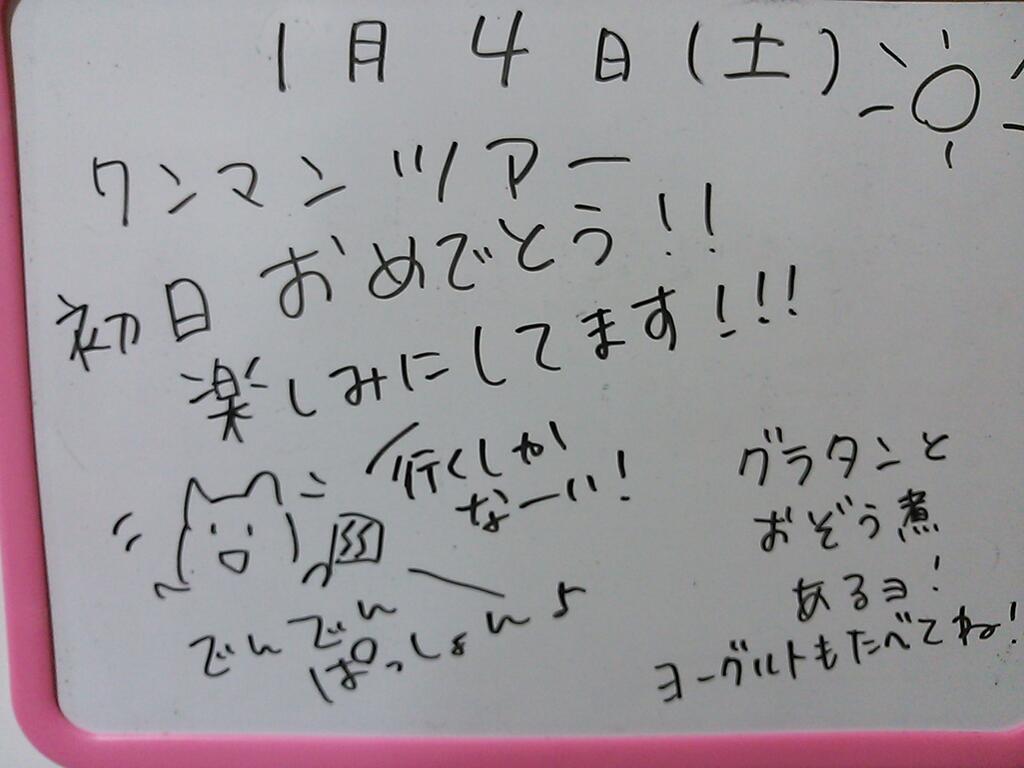 1月4日(土)
ワンマンツアー
初日おめでとう!!
楽しみにしてます!!!
行くしか
なーい!
でんでん
ぱっしょん
グラタンと
おぞう煮
あるヨ!
ヨーグルトもたべてね!